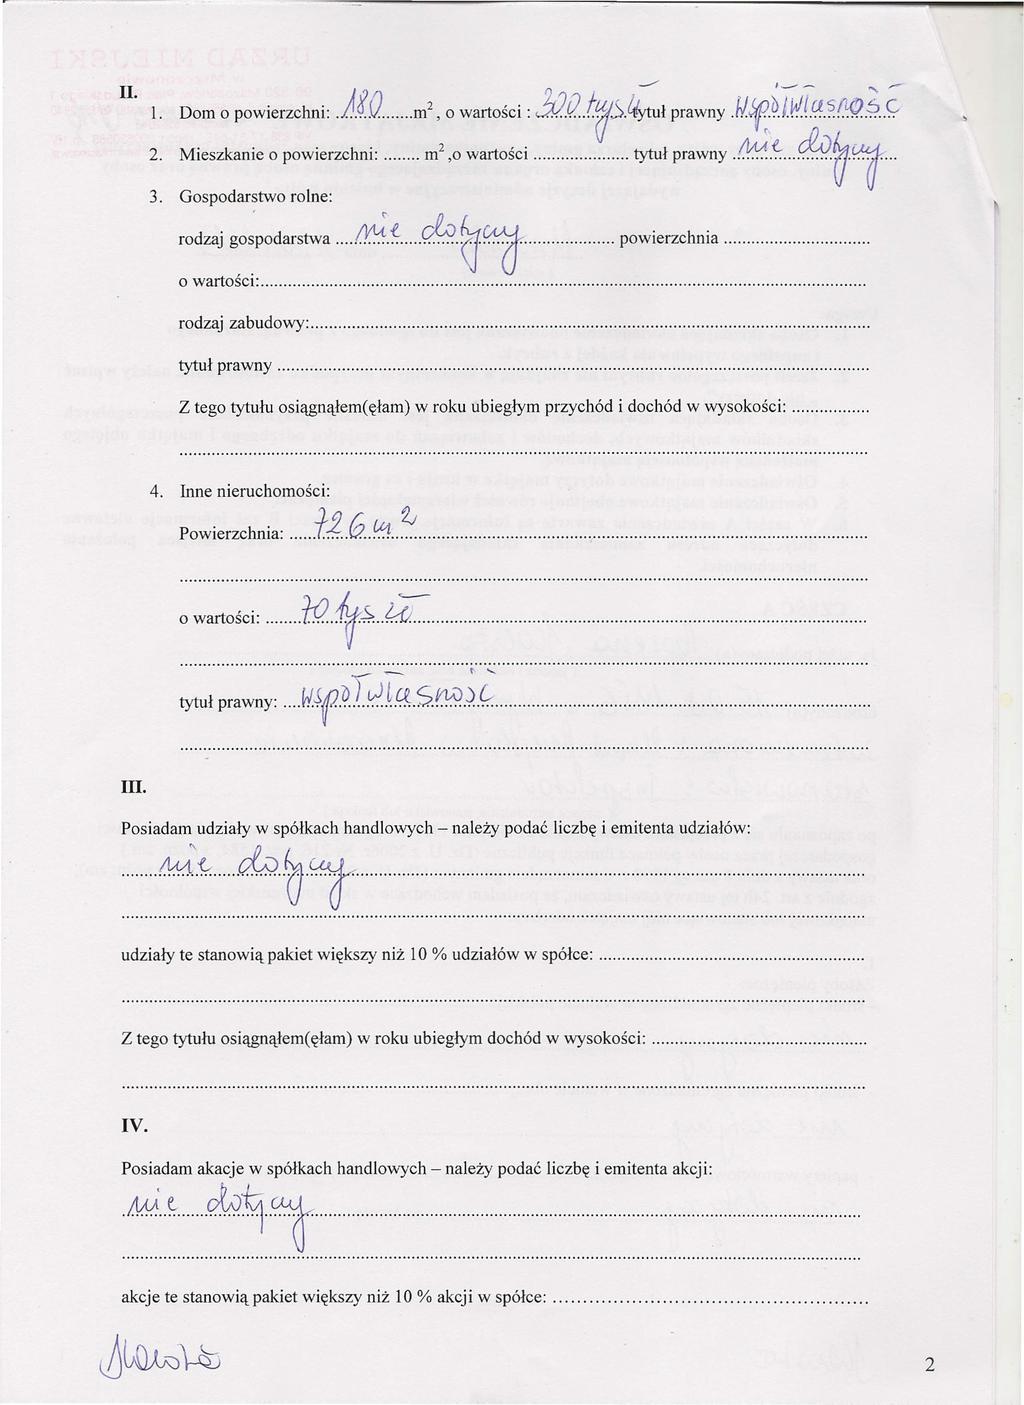 II.
1. Dom o powierzchni: 180 m², o wartości : 300 tys zł tytuł prawny współwłasność
2. Mieszkanie o powierzchni: ........ m² ,o wartości .................. tytuł prawny nie dotyczy
3. Gospodarstwo rolne:
rodzaj gospodarstwa nie dotyczy powierzchnia ............................
o wartości:............................
rodzaj zabudowy:............................
tytuł prawny ............................
Z tego tytułu osiągnąłem(ęłam) w roku ubiegłym przychód i dochód w wysokości: ...............
4. Inne nieruchomości:
Powierzchnia: 726 m²
o wartości: 70 tys zł
tytuł prawny: współwłasność
III.
Posiadam udziały w spółkach handlowych – należy podać liczbę i emitenta udziałów:
nie dotyczy
udziały te stanowią pakiet większy niż 10 % udziałów w spółce: ............................
Z tego tytułu osiągnąłem(ęłam) w roku ubiegłym dochód w wysokości: ............................
IV.
Posiadam akacje w spółkach handlowych – należy podać liczbę i emitenta akcji:
nie dotyczy
akcje te stanowią pakiet większy niż 10 % akcji w spółce: ............................
2